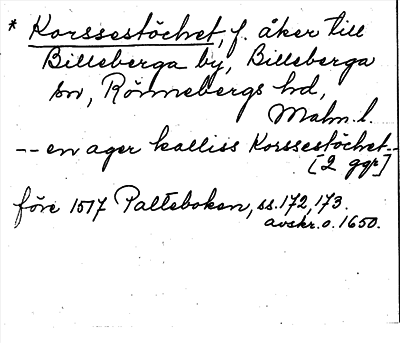 * Korssestöchet, f. åker till
Billeberga by, Billeberga
sn, Rönnebergs hd,
Malm. l.
-- en ager kalliss Korssestöchet --
[2 ggr]
före 1517 Palteboken, ss. 172, 173.
avskr. o. 1650.